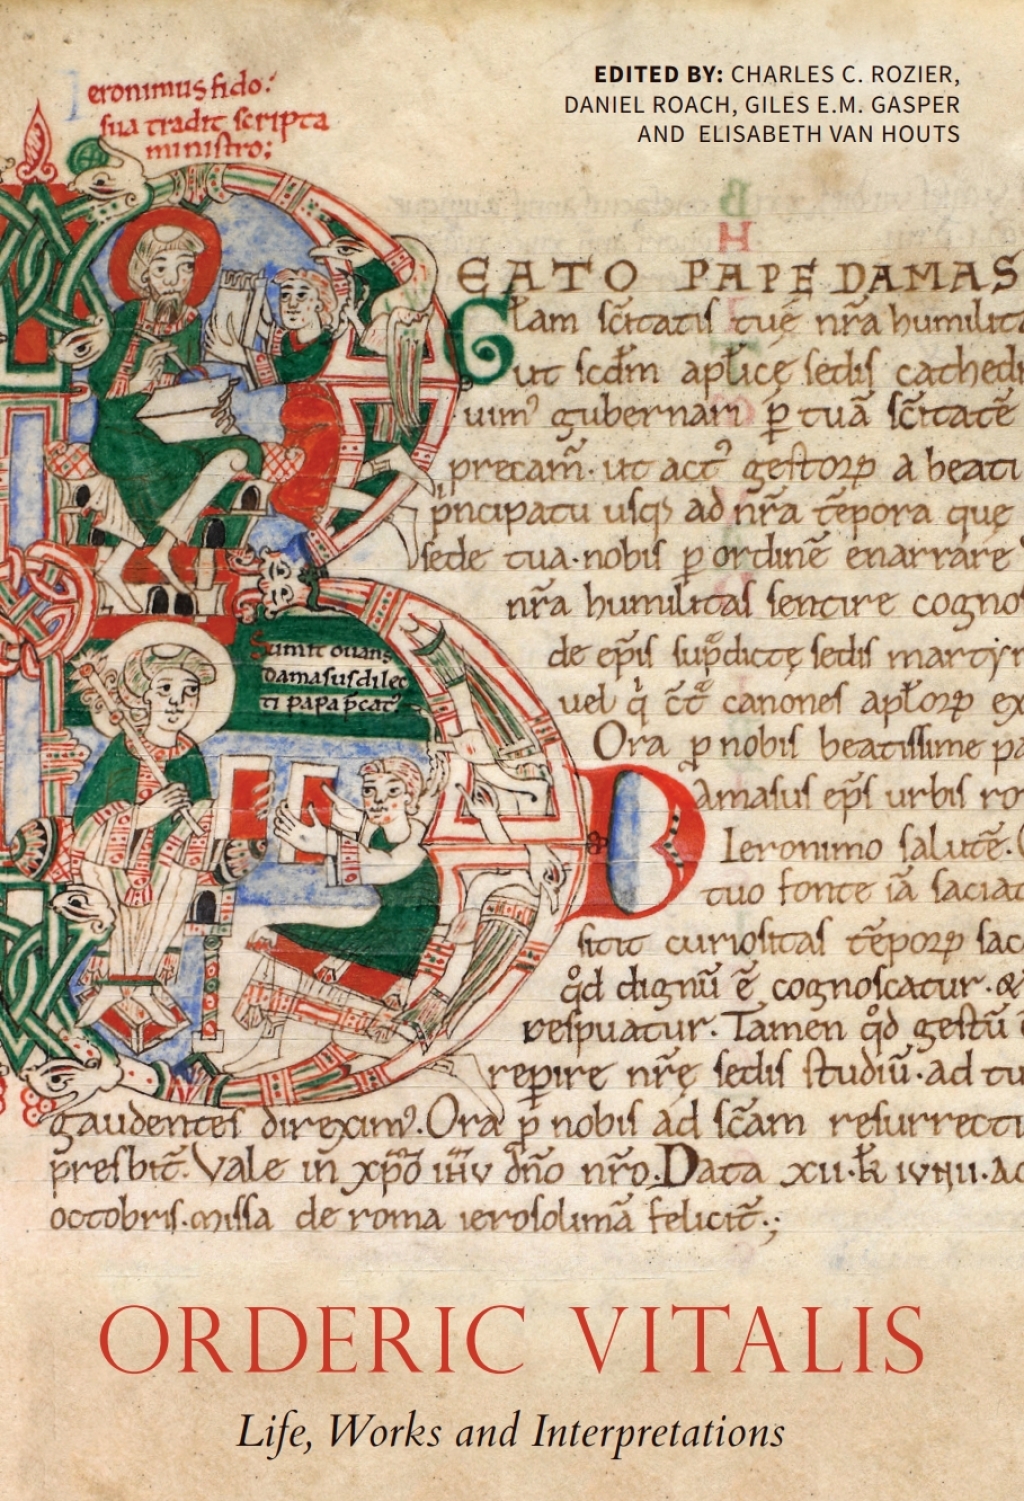 EDITED BY: CHARLES C. ROZIER,
DANIEL ROACH, GILES E.M. GASPER
AND ELISABETH VAN HOUTS
Ieronimus fido.
sua tradit scripta
ministro;
EATO PAPE DAMAS
Glam sc̄itatis tuę nr̄a humilita
ut scd̄m apl̄icę sedis cathedr
uim᾽ gubernari p̱ tuā sc̄itatē
precam̄. ut act᾽ gestoꝝ a beati
pncipatu usqꝫ ad nr̄a tēpora que
sede tua. nobis p̱ ordinē enarrare
nr̄a humilitas sentire cogno
de ep̄is sup̄dictę sedis martyr
uel canones apl̄oꝝ ex
Ora p̱ nobis beatissime pa
Sumit ouans
Damasus dilec
ti papa p̄cat᾽
Damasus ep̄s urbis ro
Ieronimo salutē.
tuo fonte iā saciat
sitit curiositas tēpoꝝ sac
qd̄ dignū ē cognoscatur. &
respuatur. Tamen qd̄ gestū
reperire nr̄ę sedis studiū. ad tu
gaudentes direxim᾽. Ora p̱ nobis ad sc̄am resurrecti
presbit̄. Vale in xp̄o ih̄u dn̄o nr̄o. Data xii. k̄ iunii. ac
octobris. missa de roma ierosolimā felicit̄.;
ORDERIC VITALIS
Life, Works and Interpretations